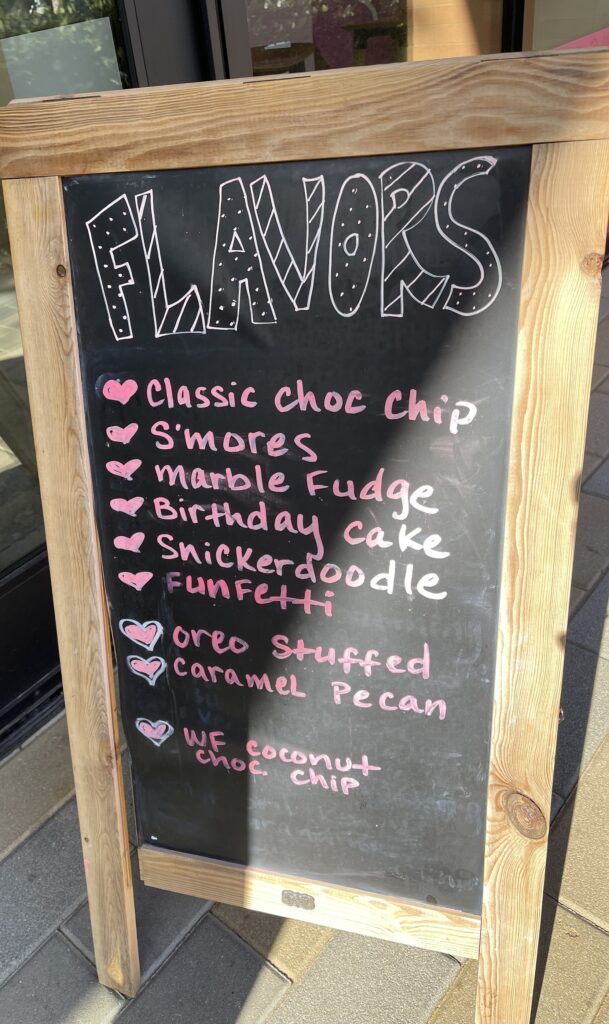 FLAVORS
Classic choc chip
S'mores
marble Fudge
Birthday cake
Snickerdoodle
Funfetti
oreo Stuffed
caramel Pecan
WF coconut
choc. chip